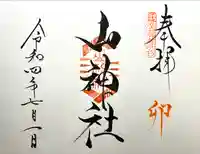 奉拝
卯
山神社
令和四年七月一日